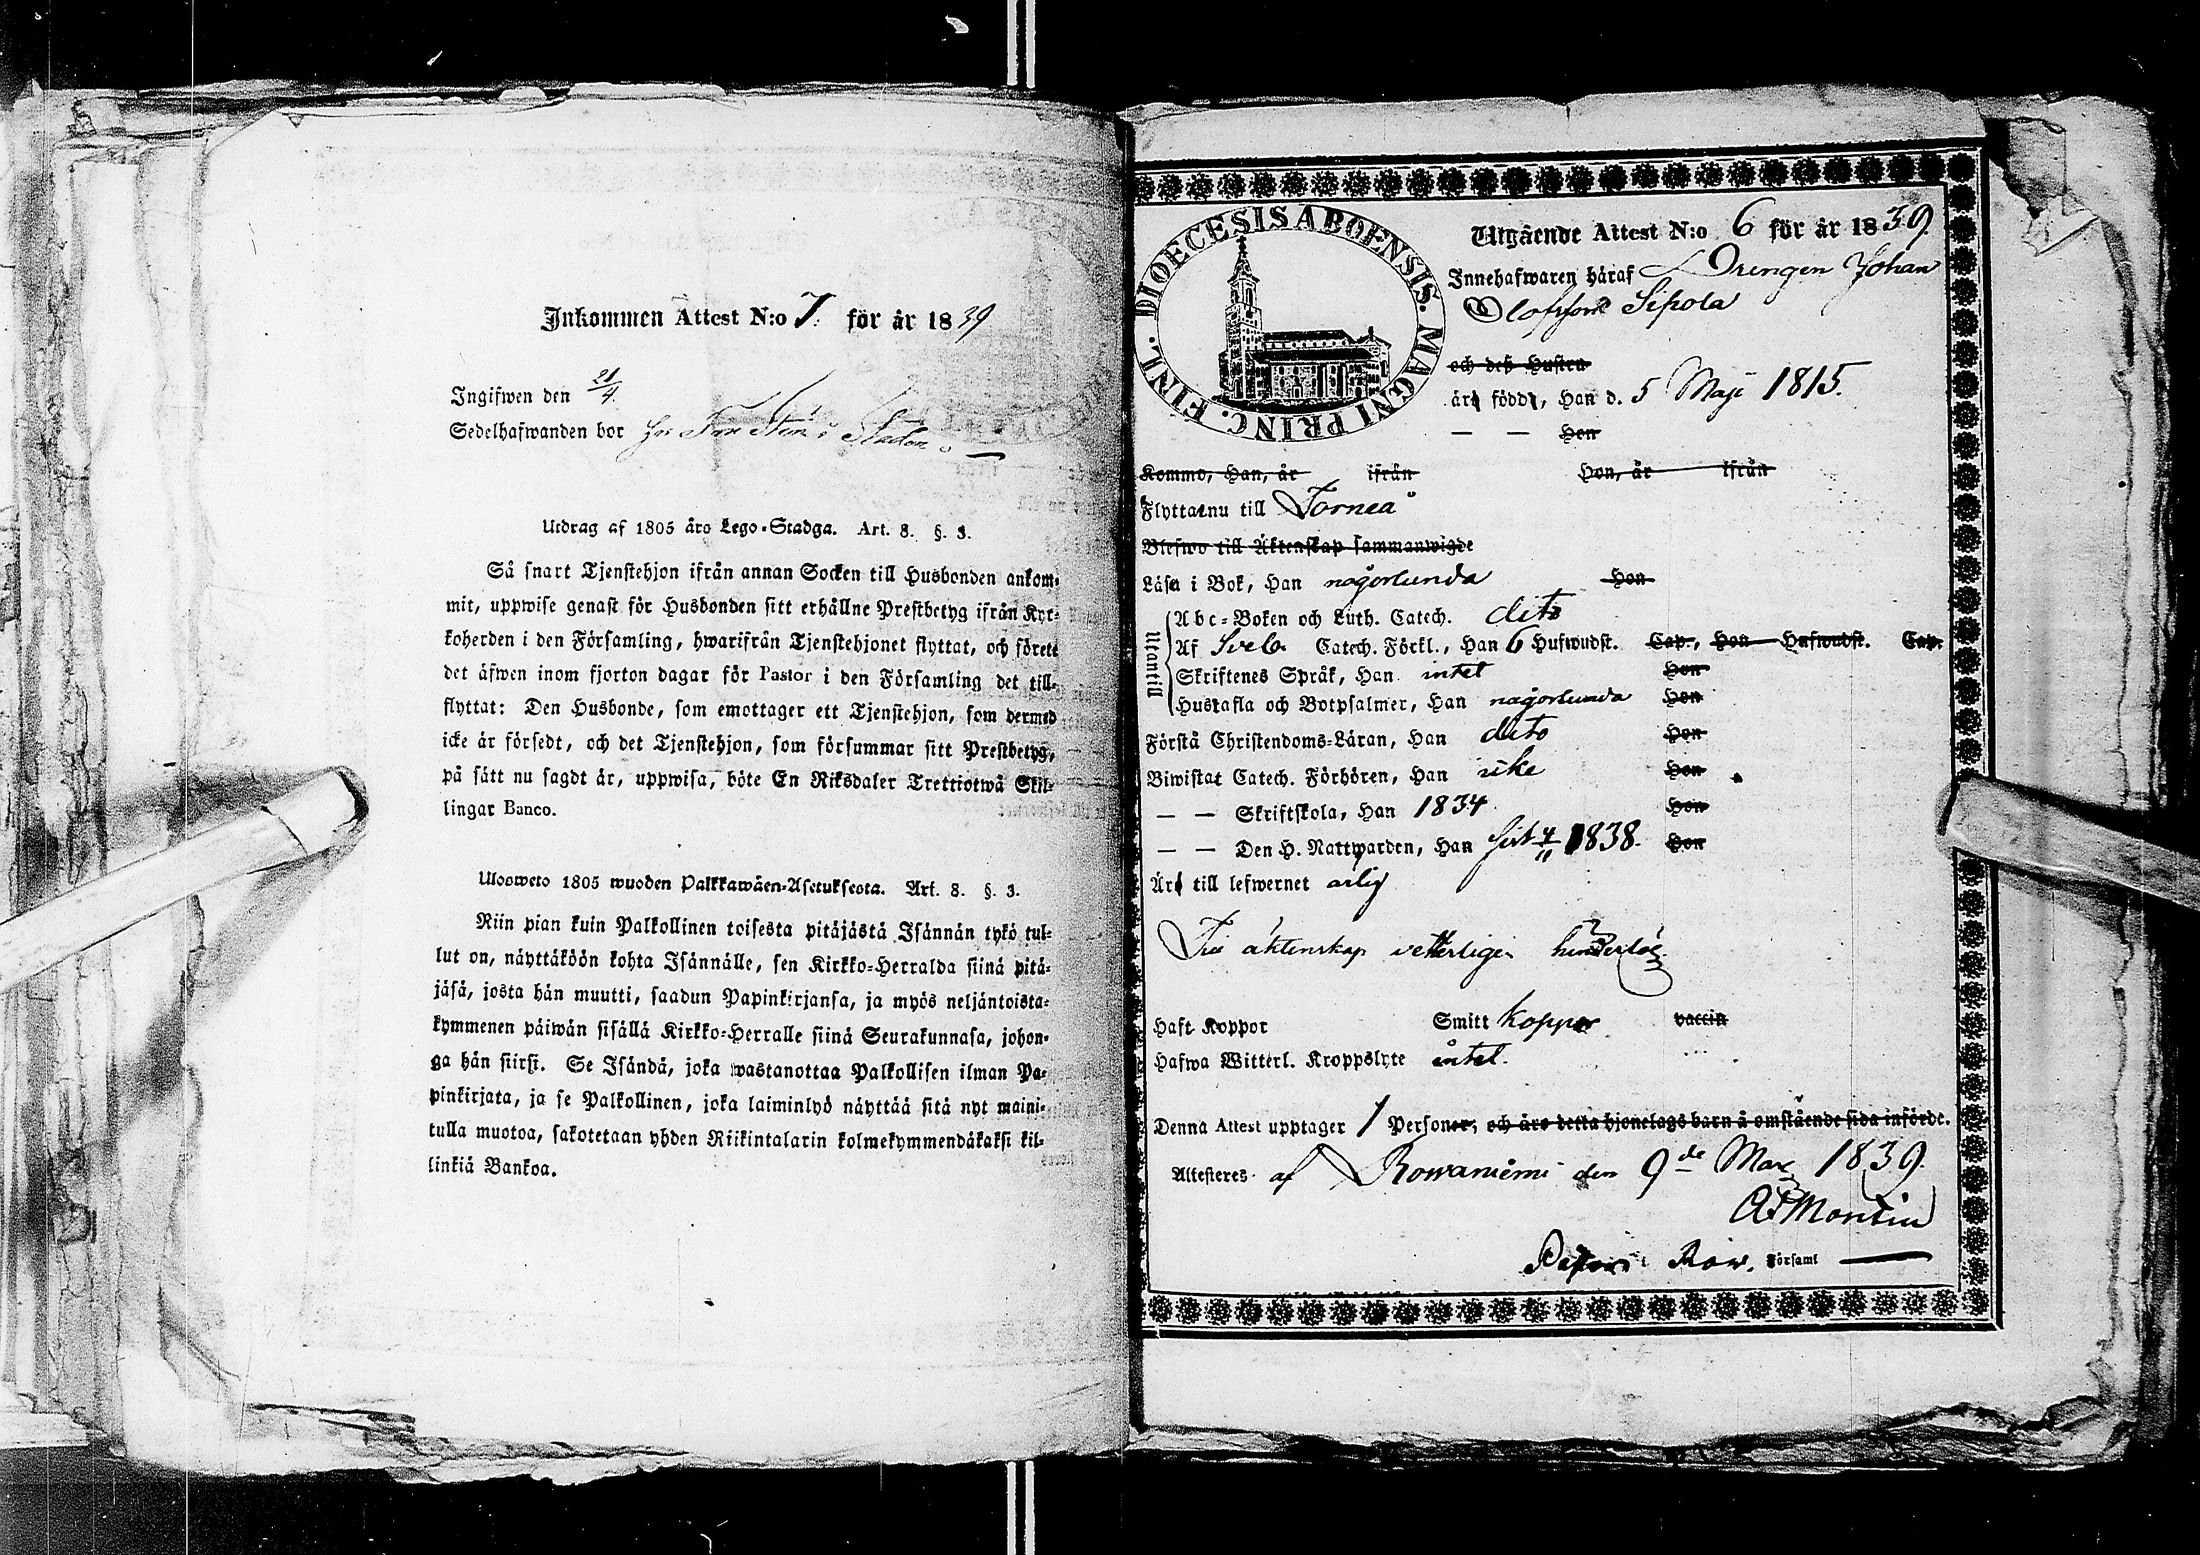 Inkommen Attest N:o 7. för år 1839
Ingifwen den 21/4.
Sedelhafwanden bor hos Staden
Utdrag af 1805 års Lego-Stadga. Art. 8. §. 3.
Så snart Tjenstehjon ifrån annan Socken till Husbonden ankom-
mit, uppwise genast för Husbonden sitt erhållne Prestbetyg ifrån Kyr-
koherden i den Församling, hwarifrån Tjenstehjonet flyttat, och förete
det äfwen inom fjorton dagar för Pastor i den Församling det till-
flyttat: Den Husbonde, som emottager ett Tjenstehjon, som dermed
icke är försedt, och det Tjenstehjon, som försummar sitt Prestbetyg,
på sätt nu sagdt är, uppwisa, böte En Riksdaler Trettiotwå Skil-
lingar Banco.
Ulosweto 1805 wuoden Palkkawäen-Asetuksesta. Art. 8. §. 3.
Niin pian kuin Palkollinen toisesta pitäjästä Isännän tykö tul-
lut on, näyttäköön kohta Isännälle, sen Kirkko-Herralda siinä pitä-
jäsä, josta hän muutti, saadun Papinkirjansa, ja myös neljäntoista-
kymmenen päiwän sisällä Kirkko-Herralle siinä Seurakunnasa, johon-
ga hän siirsi. Se Isändä, joka wastanottaa Palkollisen ilman Pa-
pinkirjata, ja se Palkollinen, joka laiminlyö näyttää sitä nyt maini-
tulla muotoa, sakotetaan yhden Riikintalarin kolmekymmendäkaksi kil-
linkiä Bankoa.
DIOECESIS ABOENSIS. MAGNI PRINC. FINL.
Utgående Attest N:o 6 för år 1839.
Innehafwaren häraf Drengen Johan
Olofsson Sipola
och deß Hustru
äro födde, Han d. 5 Maji 1815.
— — Hon
Kommo, Han, år ifrån Hon, år ifrån
Flytta nu till Torneå
Blefwo till Äktenskap sammanwigde
Läsa i Bok, Han någorlunda Hon
Utantill
Abc-Boken och Luth. Catech. dito
Af Sveb. Catech. Förkl., Han 6 Hufwudst. Cap., Hon Hufwudst. Cap.
Skriftenes Språk, Han intet Hon
Hustafla och Botpsalmer, Han någorlunda Hon
Förstå Christendoms-Läran, Han dito Hon
Biwistat Catech. Förhören, Han icke Hon
— — Skriftskola, Han 1834 Hon
— — Den H. Nattwarden, Han sist 4/11 1838. Hon
Äro till lefwernet ärlig
Till äktenskap vetterligen hinderlös.
Haft Koppor Smitt koppor vaccin
Hafwa Witterl. Kroppslyte intet.
Denna Attest upptager 1 Personer, och äro detta hjonelags barn å omstående sida införde.
Attesteres af Rowaniemi den 9de Mars 1839.
Montin
Pastor i Row. Församl